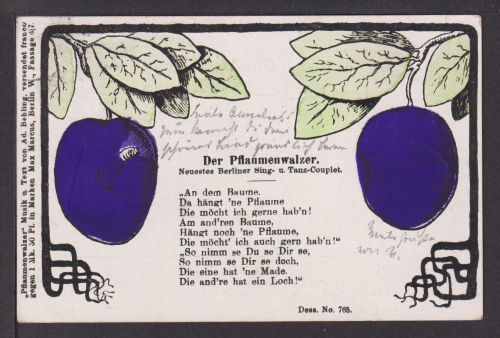 „Pflaumenwalzer“ Musik u. Text von Ad. Behling, versendet franco
gegen 1 Mk. 50 Pf. in Marken Max Marcus, Berlin W., Passage 6/7.
Der Pflaumenwalzer.
Neuestes Berliner Sing- u. Tanz-Couplet.
„An dem Baume,
Da hängt 'ne Pflaume
Die möcht ich gerne hab'n!
Am and'ren Baume,
Hängt noch 'ne Pflaume,
Die möcht' ich auch gern hab'n!“
„So nimm se Du se Dir se,
So nimm se Dir se doch,
Die eine hat 'ne Made.
Die and're hat ein Loch!“
Dess. No. 765.